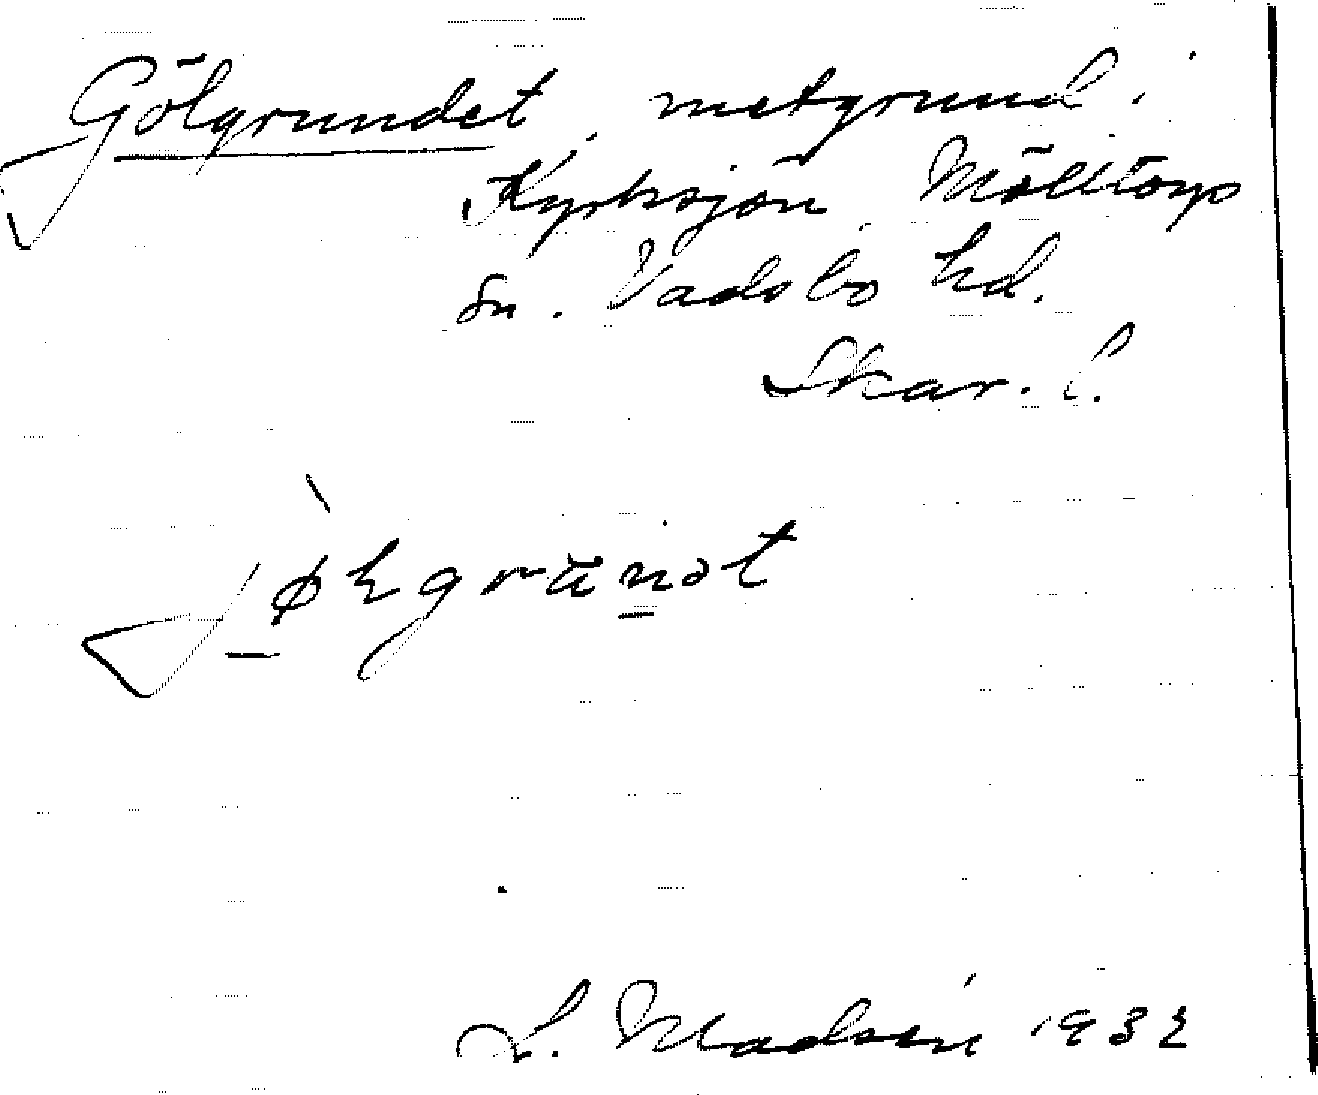 Gölgrundet, metgrund i
Kyrksjön, Mölltorp
sn. Vadsbo hd.
Skar. l.
L. Madsén 1932